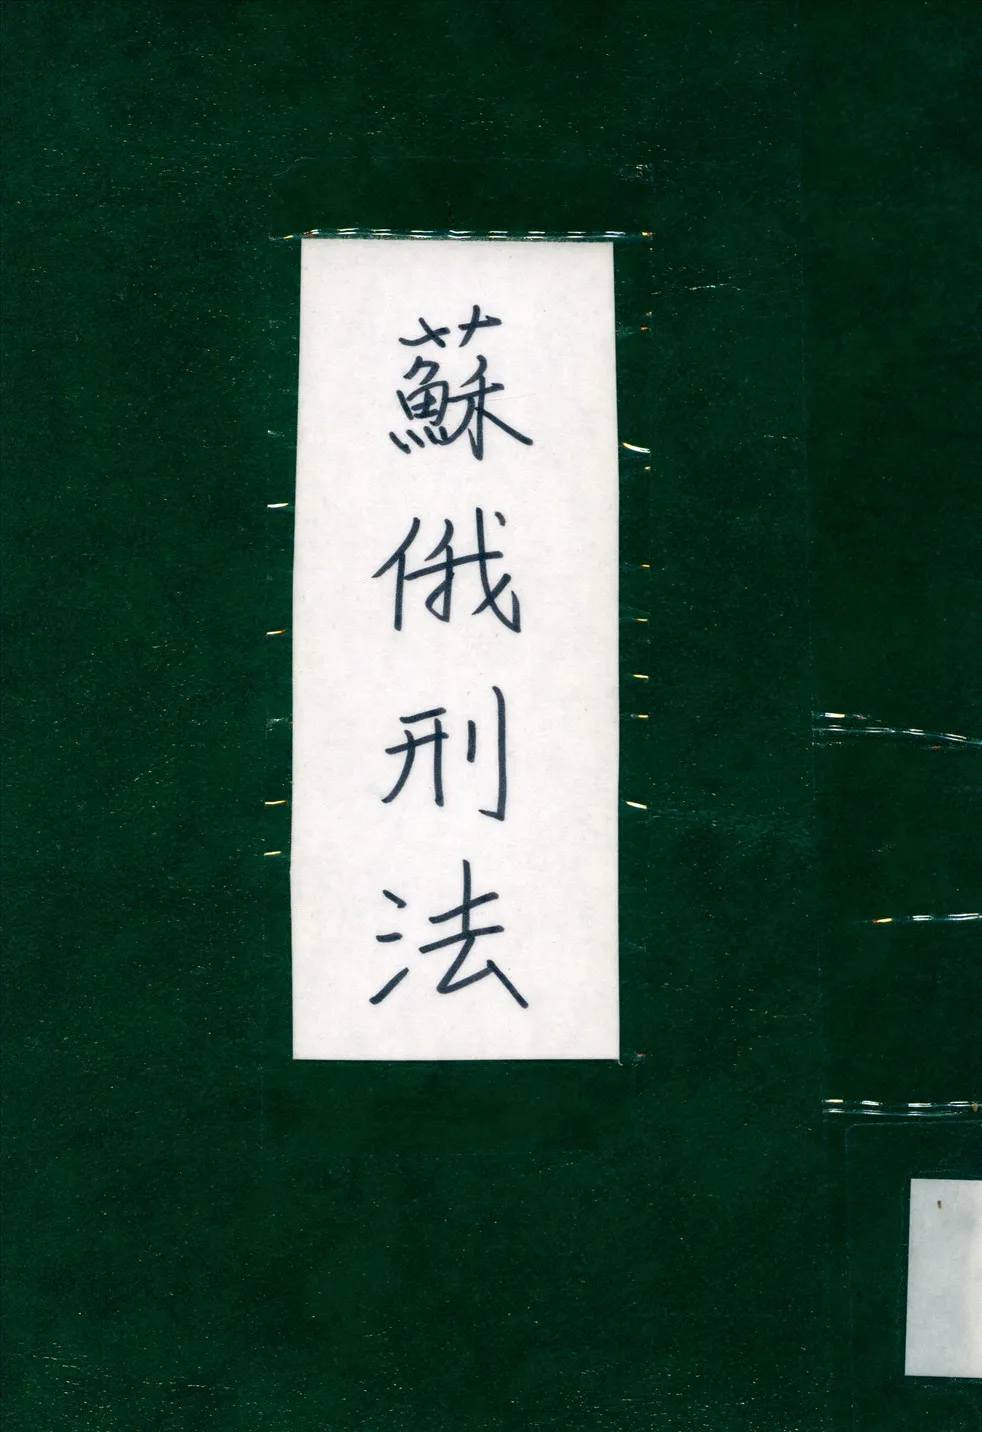 蘇俄刑法